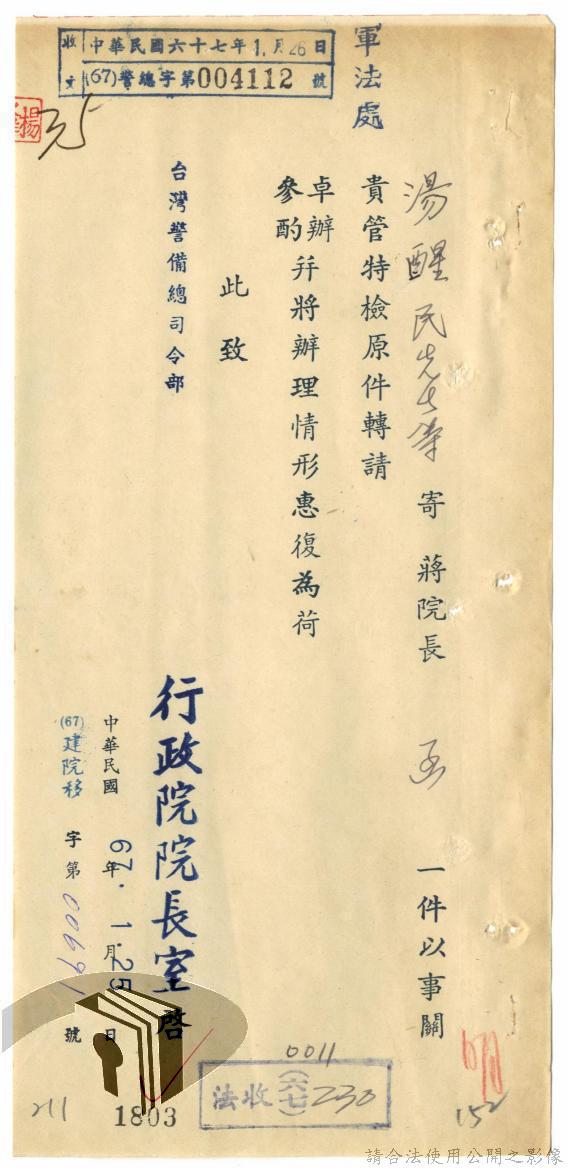 收文 中華民國六十七年1月26日
(67)警總字第004112號
軍法處
湯醒民先生等 寄 蔣院長 函 一件以事關
貴管特檢原件轉請
卓辦
參酌 幷將辦理情形惠復為荷
此致
台灣警備總司令部
行政院院長室啓
中華民國 67年1月25日
(67)建院移 字第00691號
楊
0011
法收(六七)230
211
1803
152
請合法使用公開之影像